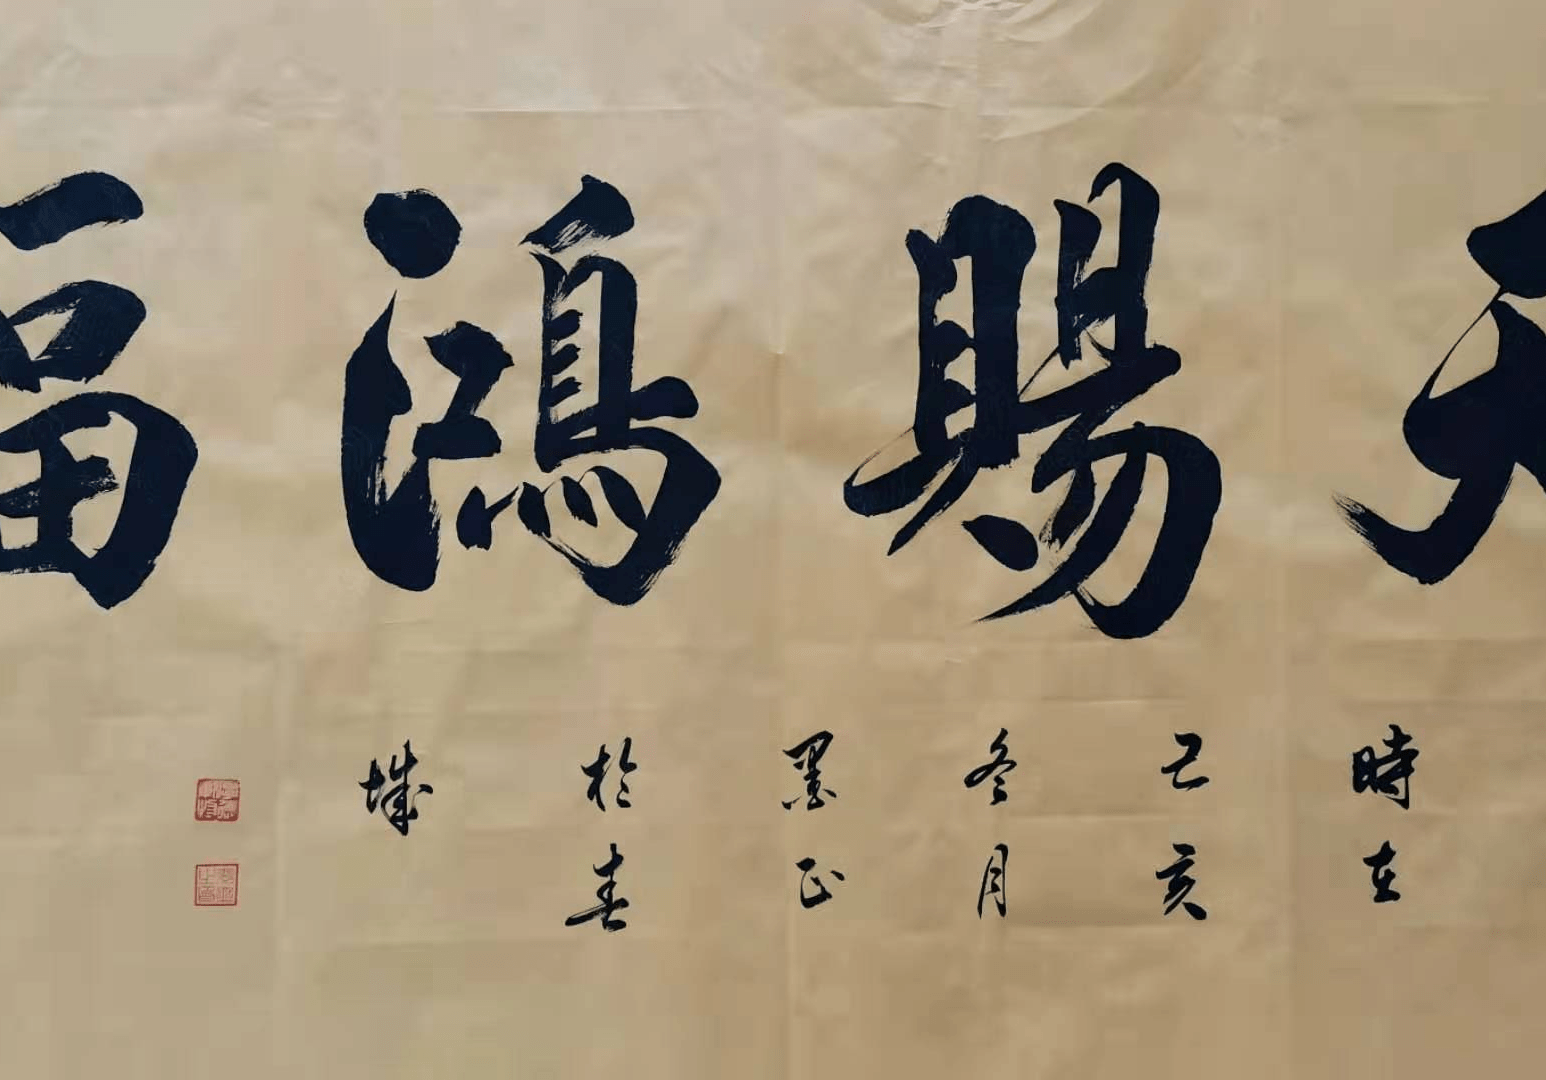 天賜鴻福
時在
己亥
冬月
墨正
於春
城